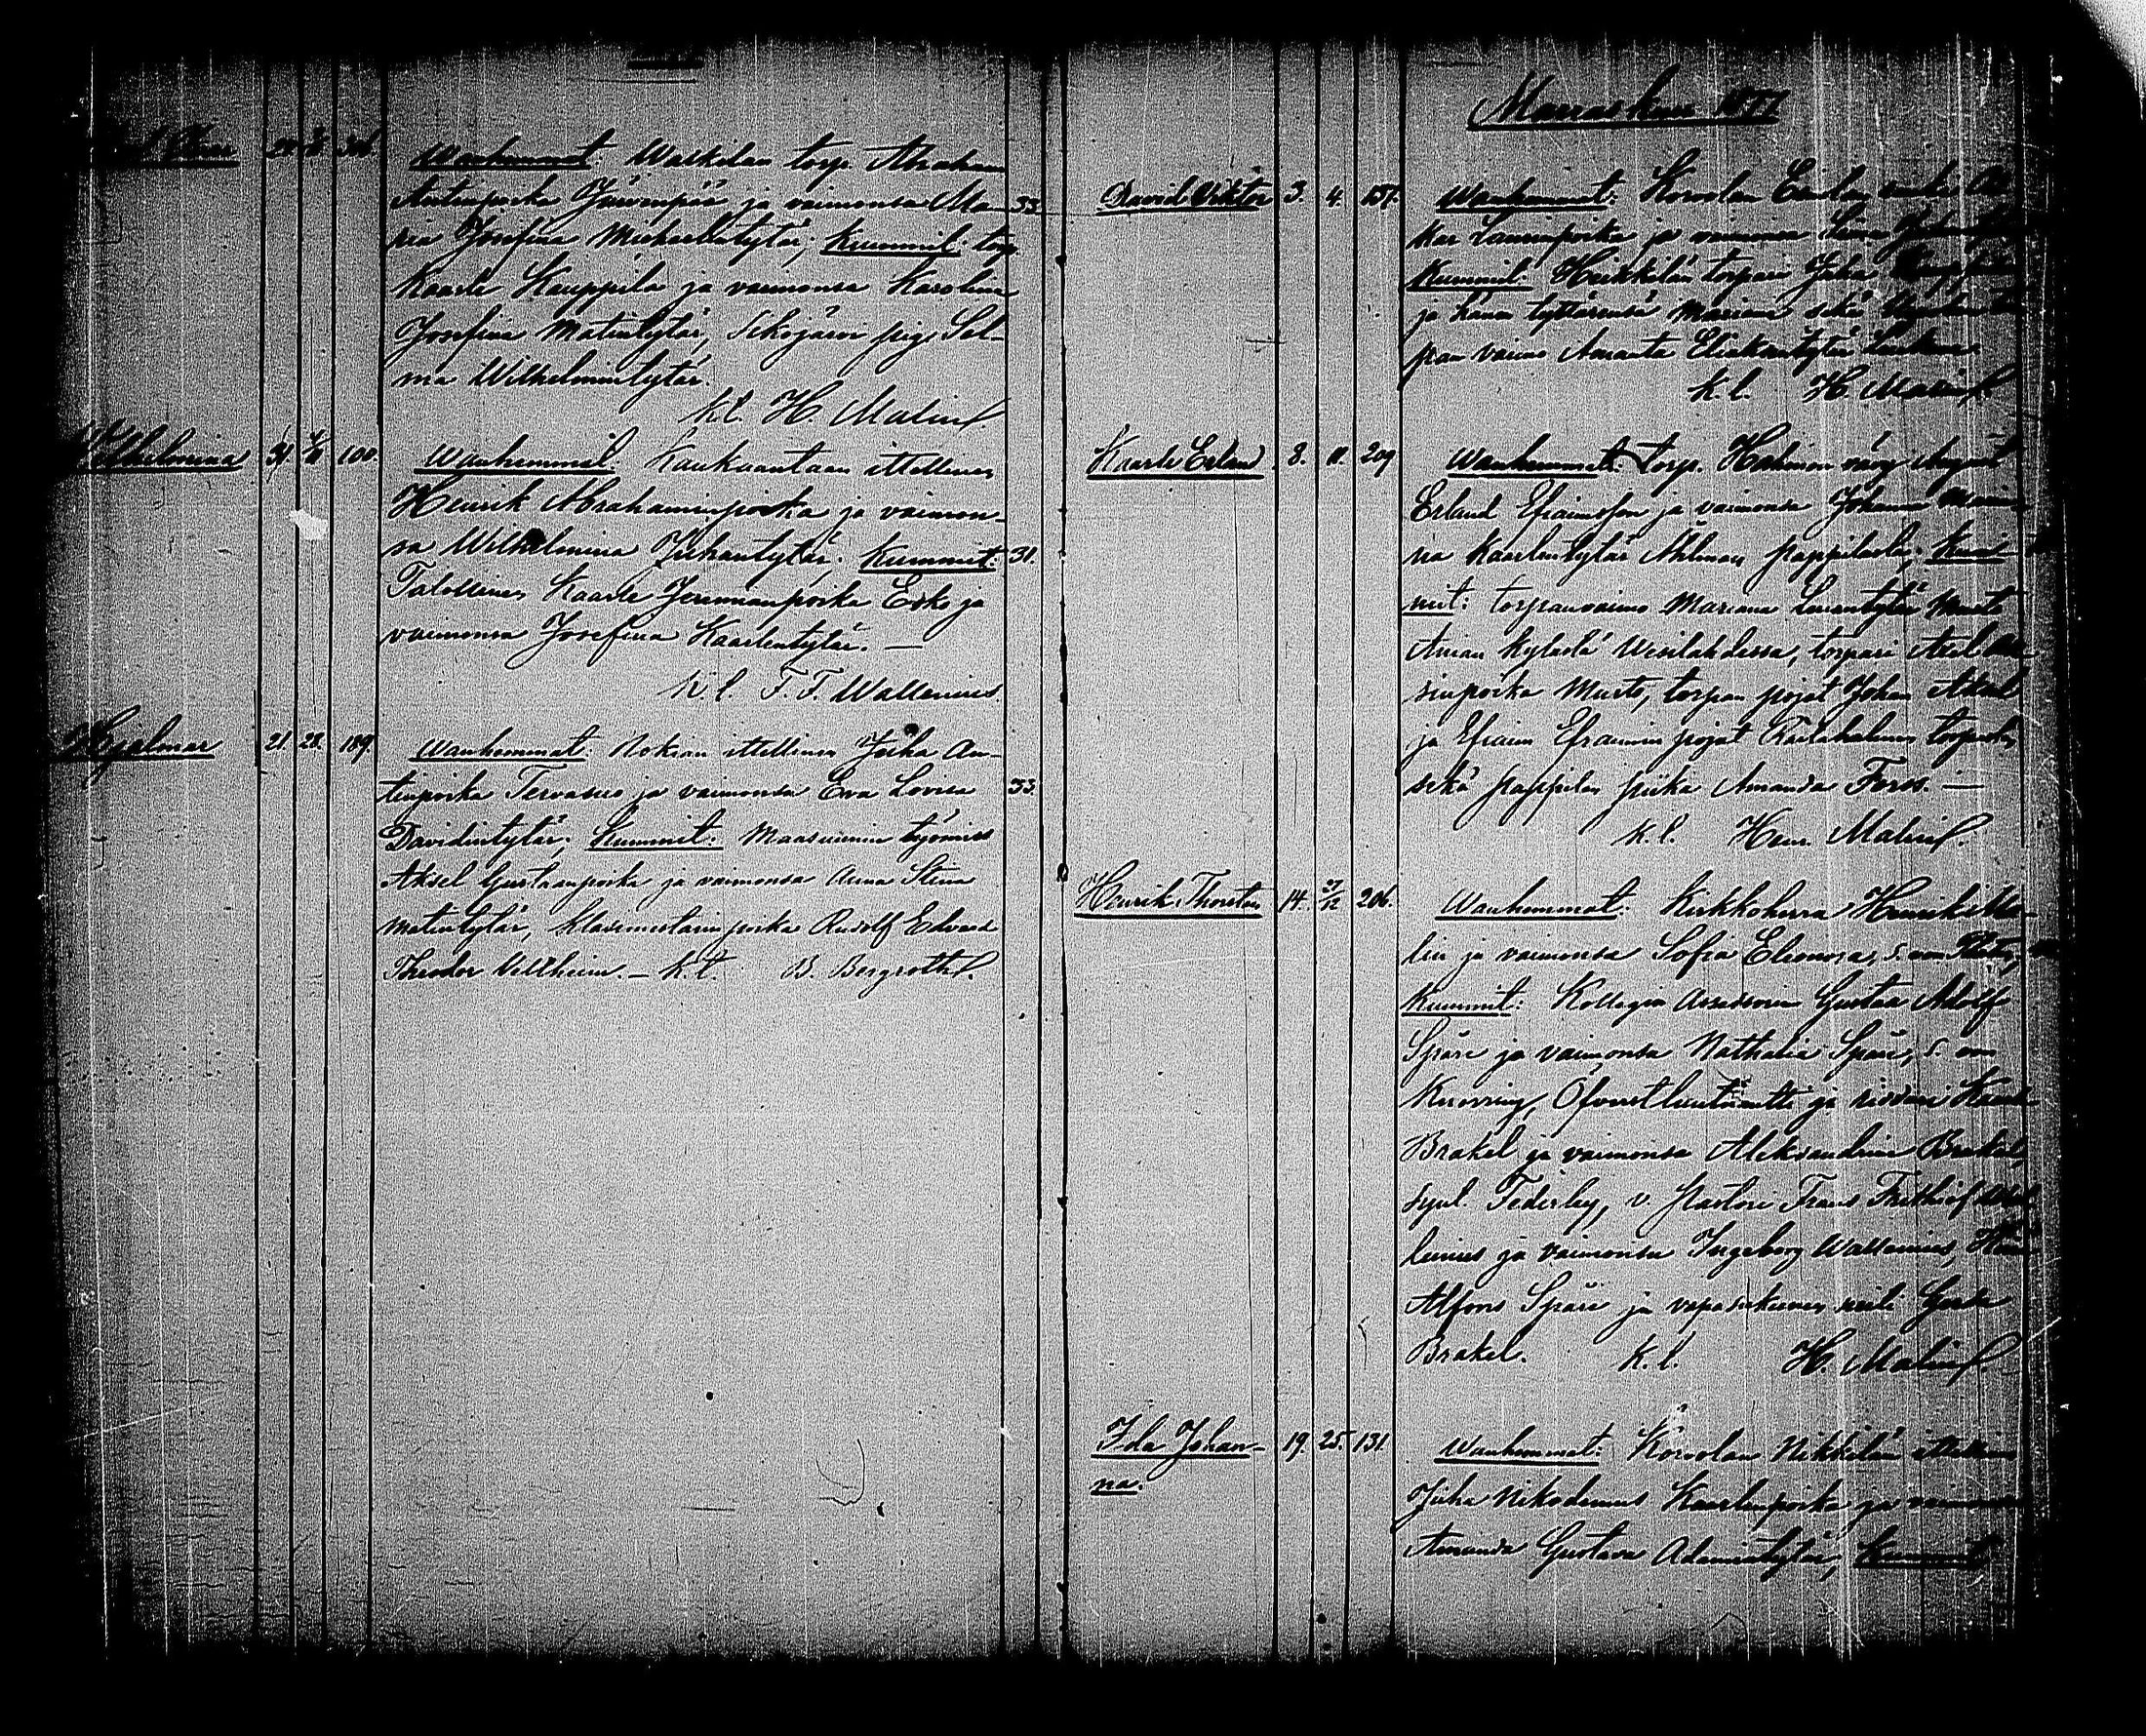 29 306
Wanhemmat: Waskilan torp. Abraham
Antinpoika Järvenpää ja vaimonsa Ma- 33
ria Josefina Michaelintytär; Kummit: torp.
Kaarle Kauppila ja vaimonsa Karolina
Josefina Matintytär, Sekojärvi pig. Sel-
ma Wilhelmintytär.
k.l. H. Malin
Wilhelmina 31 100
Wanhemmat Kaukaantaan itellinen
Henrik Abrahaminpoika ja vaimon-
sa Wilhelmina Juhantytär. Kummit: 31.
Talollinen Kaarle Jeremianpoika Erko ja
vaimonsa Josefina Kaarlentytär. —
k.l. F. F. Wallenius.
Hjalmar 21. 28. 189.
Wanhemmat: Nokian itellinen Juha An-
tinpoika Tervasuo ja vaimonsa Eva Lovisa 33.
Davidintytär; Kummit: Maasuunin työmies
Aksel Gustaanpoika ja vaimonsa Anna Stina
Matintytär, klasimestarin poika Rudolf Edvard
Theodor Wilhelm. — k.l. B. Bergroth.
Marraskuu 1877
David Viktor 3. 4. 157.
Wanhemmat: Korvolan
kar Laurinpoika ja vaimonsa
Kummit: Heikkilän torpari Juha
ja hänen tyttärensä Mariana sekä
pan vaimo Amanta
k.l. H. Malin
Kaarle Erland 8. 11. 209
Wanhemmat: torp. August
Erland Efraimsson ja vaimonsa Johanna
na Kaarlentytär Ahlman pappilasta; Kum-
mit: torpanvaimo Mariana Musto
Anian kylästä Wesilahdessa, torpari Axel
sinpoika Musto, torpan pojat Johan Aksel
ja Efraim Efraimin pojat torpasta,
sekä pappilan piika Amanda Forss. —
k.l. Henr. Malin.
Henrik Thorsten 14. 27/12 206.
Wanhemmat: Kirkkoherra Henrik Ma-
lin ja vaimonsa Sofia Eleonora, s. von
Kummit: Kollegin Assessorin Gustaa Adolf
Spåre ja vaimonsa Nathalia Spåre, s. von
Knorring, Öfverstluutnantti ja
Brakel ja vaimonsa Aleksandrine Brakel,
synt. Federley, v. pastori Frans Frithiof Wal-
lenius ja vaimonsa Ingeborg Wallenius,
Alfons Spåre ja vapasukuinen neiti Gerda
Brakel. k.l. H. Malin
Ida Johan- 19. 25. 131.
na.
Wanhemmat: Korvolan Nikkilän
Juha Nikodemus Kaarlenpoika ja vaimonsa
Amanda Gustava Adamintytär; Kummit